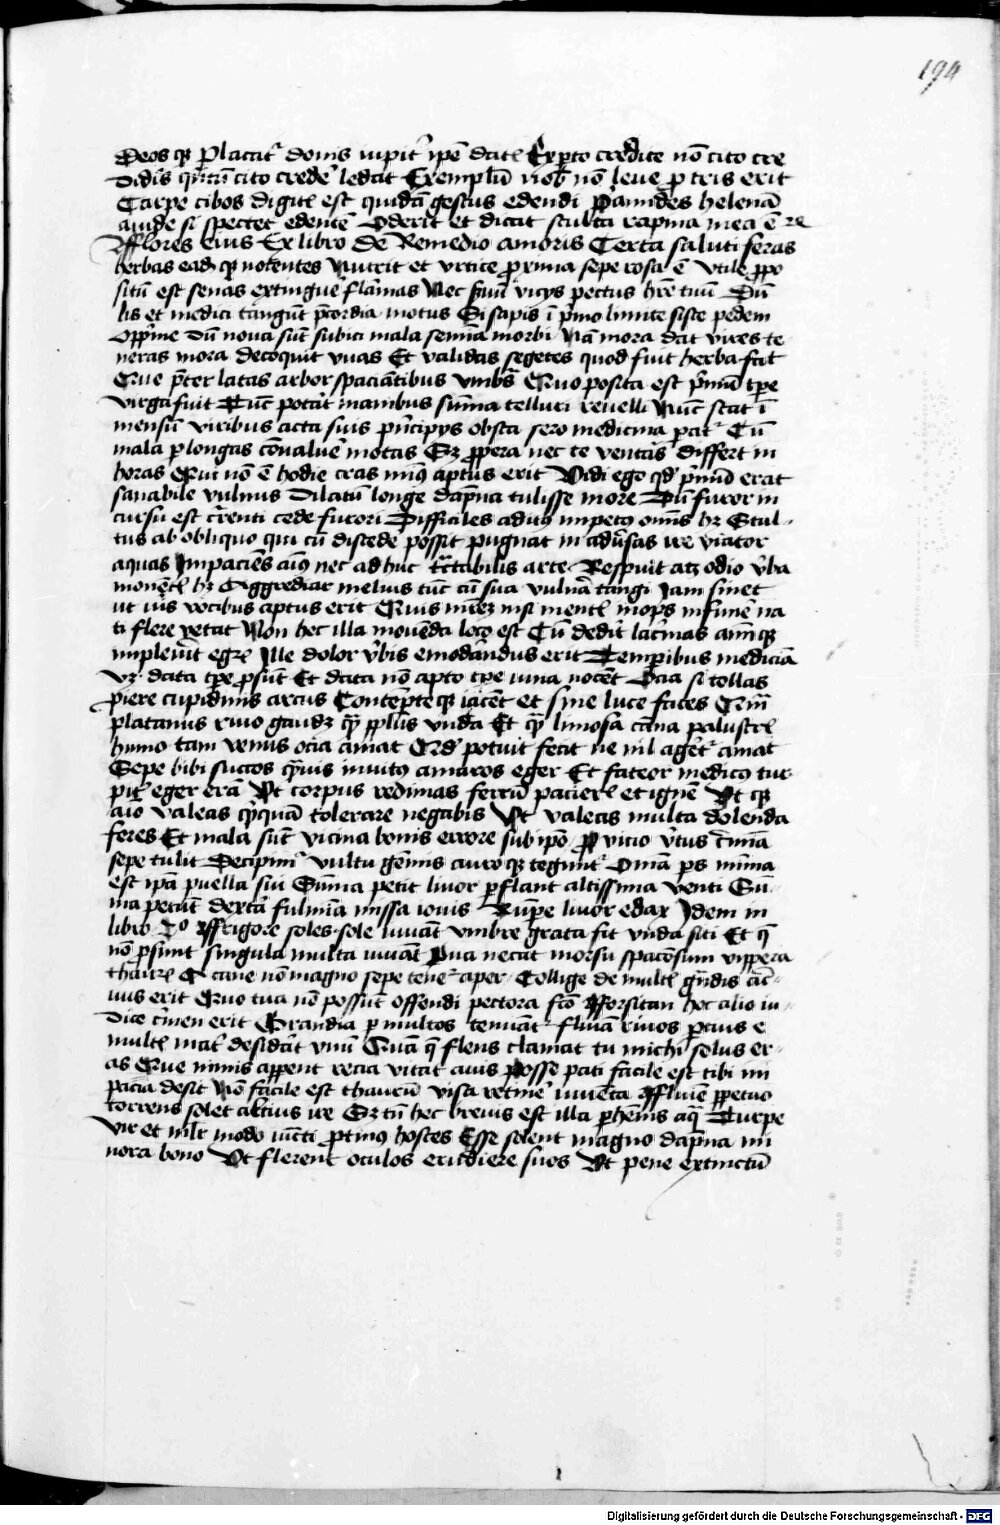 194
Deos qȝ Placat͛ donis iupit͛ ip̄e datꝭ Exꝑto credite nō cito cre
didis q̄ntū cito crede͛ ledat Exemplū vob̄ nō leue ꝓcris erit
Carpe cibos digitꝭ est quidā gestus edendi Priamides helenā
auide si spectet edentē Oderit et dicat stulta rapina mea ē re
fflores eius Ex libro De Remedio amoris Terra salutiferas
herbas eadē qȝ nocentes Nutrit et vrtice proxima sepe rosa ē Vtile ꝓpo
situ est seuas extingue͛ flāmas Nec s̄uū vicijs pectus hr̄e tuū Dū
lic et medici tangūt p̄cordia motus Si sapis ī pīmo limite siste pedem
Opp͛me dū noua sūt subici mala semīa morbi Nā mora dat vires te
neras mora decoquit vuas Et validas segetes quod fuit herba facit
Que p̄ter latas arbor spaciātibus vmbr̄ Quo posita est p͛mū tꝑe
virga fuit Tūc poterat manibus sūma telluri reuelli Nūc stat ī
mensū viribus acta suis p͛ncipijs obsta sero medicina ꝑat͛ Cū
mala ꝑ longas cōualue͛ moras Sȝ ꝓpera nec te venturas differt in
horas Qui nō ē hodie cras min9 aptus erit Vidi ego qd̄ p͛mū erat
sanabile vulnus Dilatū longe dāpna tulisse more Dū furor in
cursu est cūrenti cede furori Difficiles adit9 impet9 omīs hȝ Stul-
tus ab obliquo qui cū discede͛ possit pugnat in adūsas ire viator
aquas Impaciēs aīus nec ad huc tractabilis arte Respuit atȝ odio v͛ba
monētꝭ hȝ Aggrediar melius tūc cū sua vulnā tāngi Iam sinet
ut v͛is vocibus aptus erit Quis m̄rēȝ nisi mentꝭ inops in fune͛ na
ti flere vetat Non hec illa monēda loco est Cū dedit lac͛mas aīmqȝ
impleūit egrꝭ Ille dolor v͛bis emodandus erit Temꝑibus medicīa
vȝ data tꝑe ꝓsūt Et data nō apto tꝑe vina nocēt Ocia si tollas
ꝑiere cupidinis arcus Contēpteqȝ iacēt et sine luce faces Qm̄
platanus riuo gaudȝ q̄ pplus vnda Et q̄ limosa cāna palustrꝭ
humo tam venus ocia amat Qd̄ potuit fecit ne nil age͛t͛ amat
Sepe bibi succos q̄uis inuit9 amaros eger Et fateor medic9 tur-
pit͛ eger erā Vt corpus redimas ferrū pacierꝭ et ignē Vt qȝ
aīo valeas q̄cquā tolerare negabis Vt valeas multa dolenda
feres Et mala sūt vicina bonis errore sub ipō ꝓ vicio v͛tus c͛mīa
sepe tulit Decipim͛ vultu gemis auroqȝ tegūnt͛ Omīa ꝑs mīma
est ipā puella sui Sūma petit liuor ꝑflant altissima venti Sū-
ma petūt dextra fulmīa missa iouis Rūpe liuor edax Idem in
libro 2o ffrigore soles sole iuuāt vmbre grata fit vnda siti Et q̄
nō ꝓsunt singula multa iuuāt Pua necat morsu spaciosum vippera
thaurꝭ A cane nō magno sepe tenet͛ aper Collige de multꝭ g͛ndis ac͛-
uus erit Quo tua nō possunt offendi pectora fc̄o fforsitan hec alio iu-
dice c͛men erit Grandia ꝑ multos tenuāt͛ fluīa riuos ꝑcius e
multꝭ mat͛ desiderat vnū Quā q̄ flens clamat tu michi solus er-
as Que nimis appent recia vitat auis Posse pati facile est tibi im
paciā desit Nō facile est thaurū visa retine͛ iuuenca ffluīe ꝑpetuo
torrens solet alcius ire Sȝ tn̄ hec breuis est illa ꝑhennis aq̄ Turpe
vir et mlr̄ modo iūcti ꝓtinus hostes Esse solent magno dāpna mi
nora bono Vt flerent oculos erudiere suos Vt pene extinctū
Digitalisierung gefördert durch die Deutsche Forschungsgemeinschaft - DFG